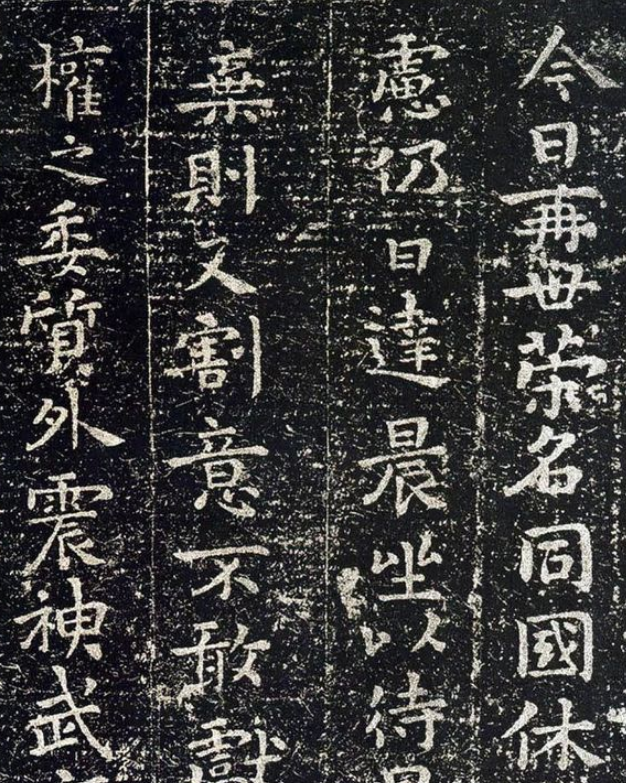 今日再世榮名同國休
慮仍日達晨坐以待
棄則又割意不敢獻
權之委質外震神武